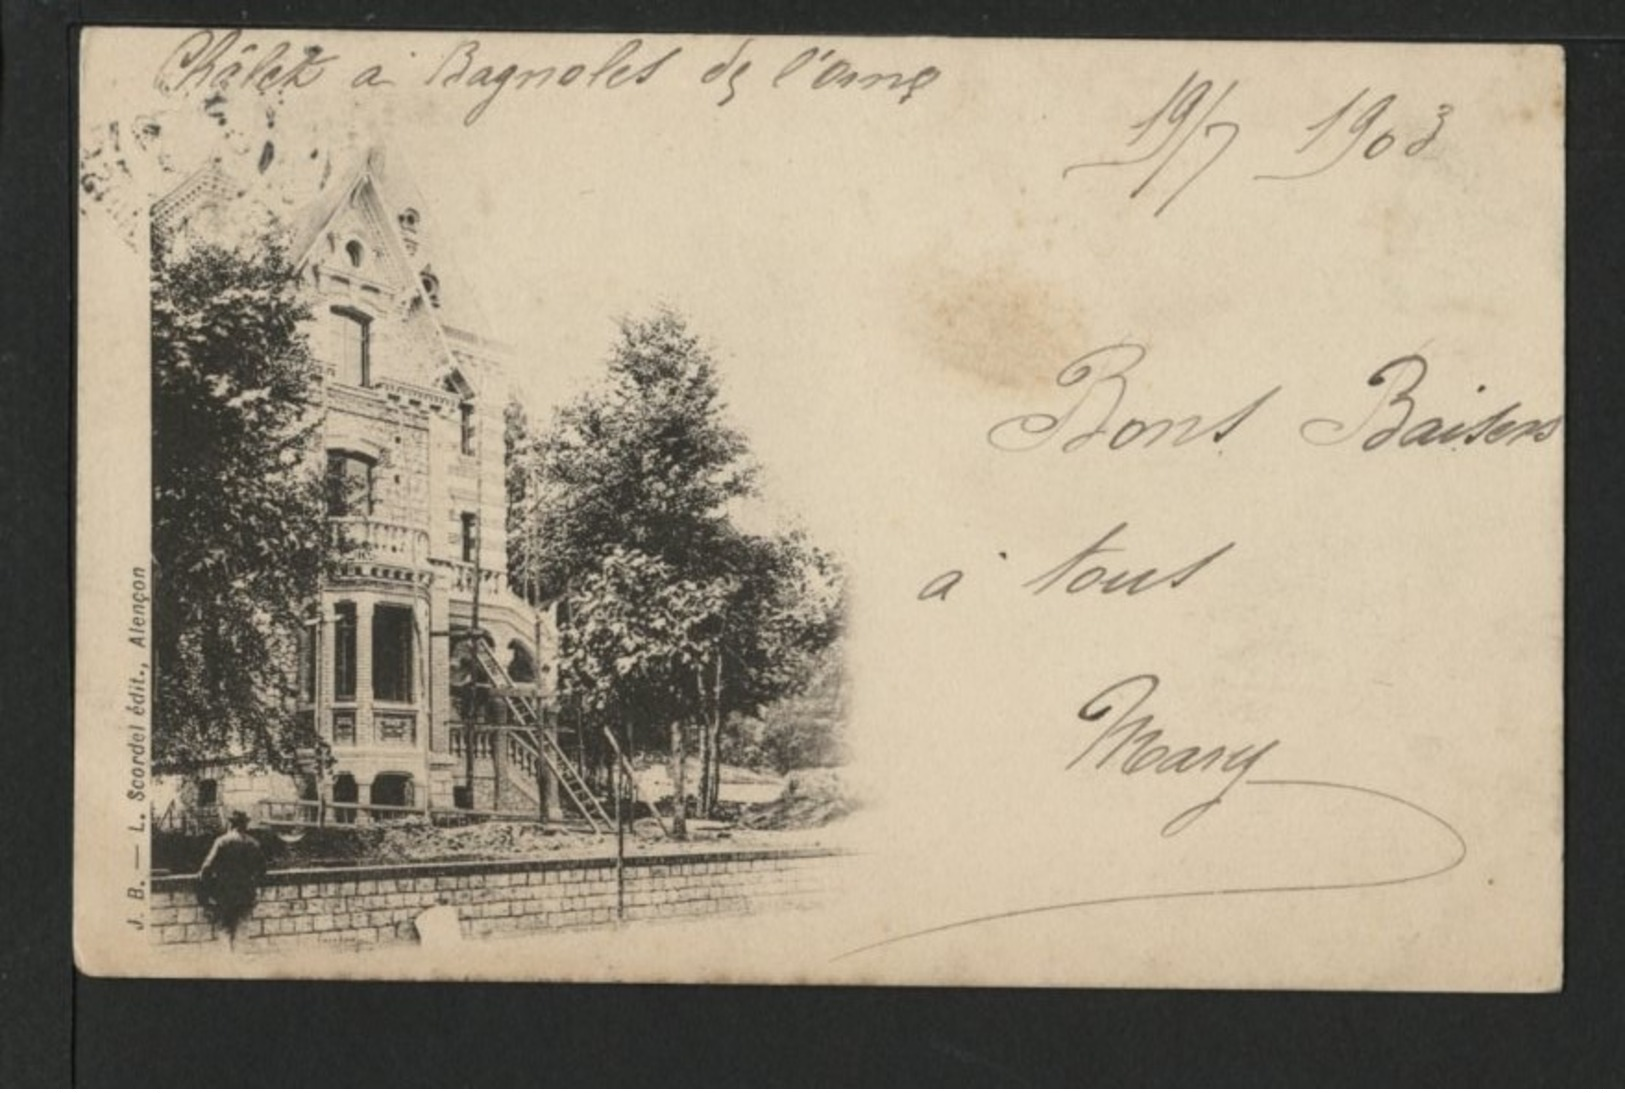 Châlet à Bagnoles de l'orne
19/7 1903
Bons Baisers
à tous
Mary
J. B. — L. Scordel édit., Alençon